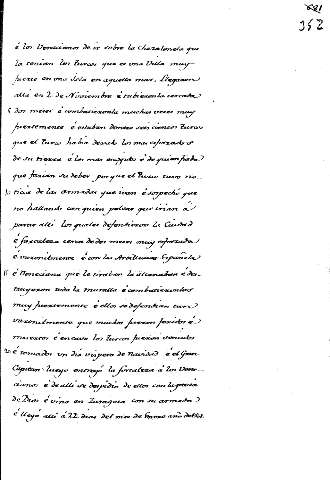 681
352
è los Venecianos de ir sobre la Chazalonela que
la tenian los Turcos que es una Villa muy
fuerte en una Isla en aquella mar. Llegaron
allà en 2. de Noviembre è tubieronla cercada
dos meses è combatieronla muchas veces muy
fuertemente è estaban dentro seiscientos Turcos
que el Turco habia desde los mas esforzados
de su tierra è los mas escogidos è de quien fiaba
que farian su deber porque el Turco tubo no-
ticia de las armadas que iban è sospechò que
no hallando con quien pelear que irian à
parar alli los quales defendieron la Ciudad
è fortaleza cerca de dos meses muy esforzada
è varonilmente è con las Artillerias Española
è Veneciana que le tiraban la allanaban è des-
truyeron toda la muralla è combatiendolos
muy fuertemente è ellos se defendian tan
varonilmente que muchos fueron feridos è
muertos è en cabo los Turcos fueron vencidos
è tomados un dia vispera de Navidad è el Gran
Capitan luego entregò la fortaleza à los Vene-
cianos è de alli se despidiò de ellos con la gracia
de Dios è vino en Zaragoza con su armada
è llegò alli à 22. dias del mes de Enero año del